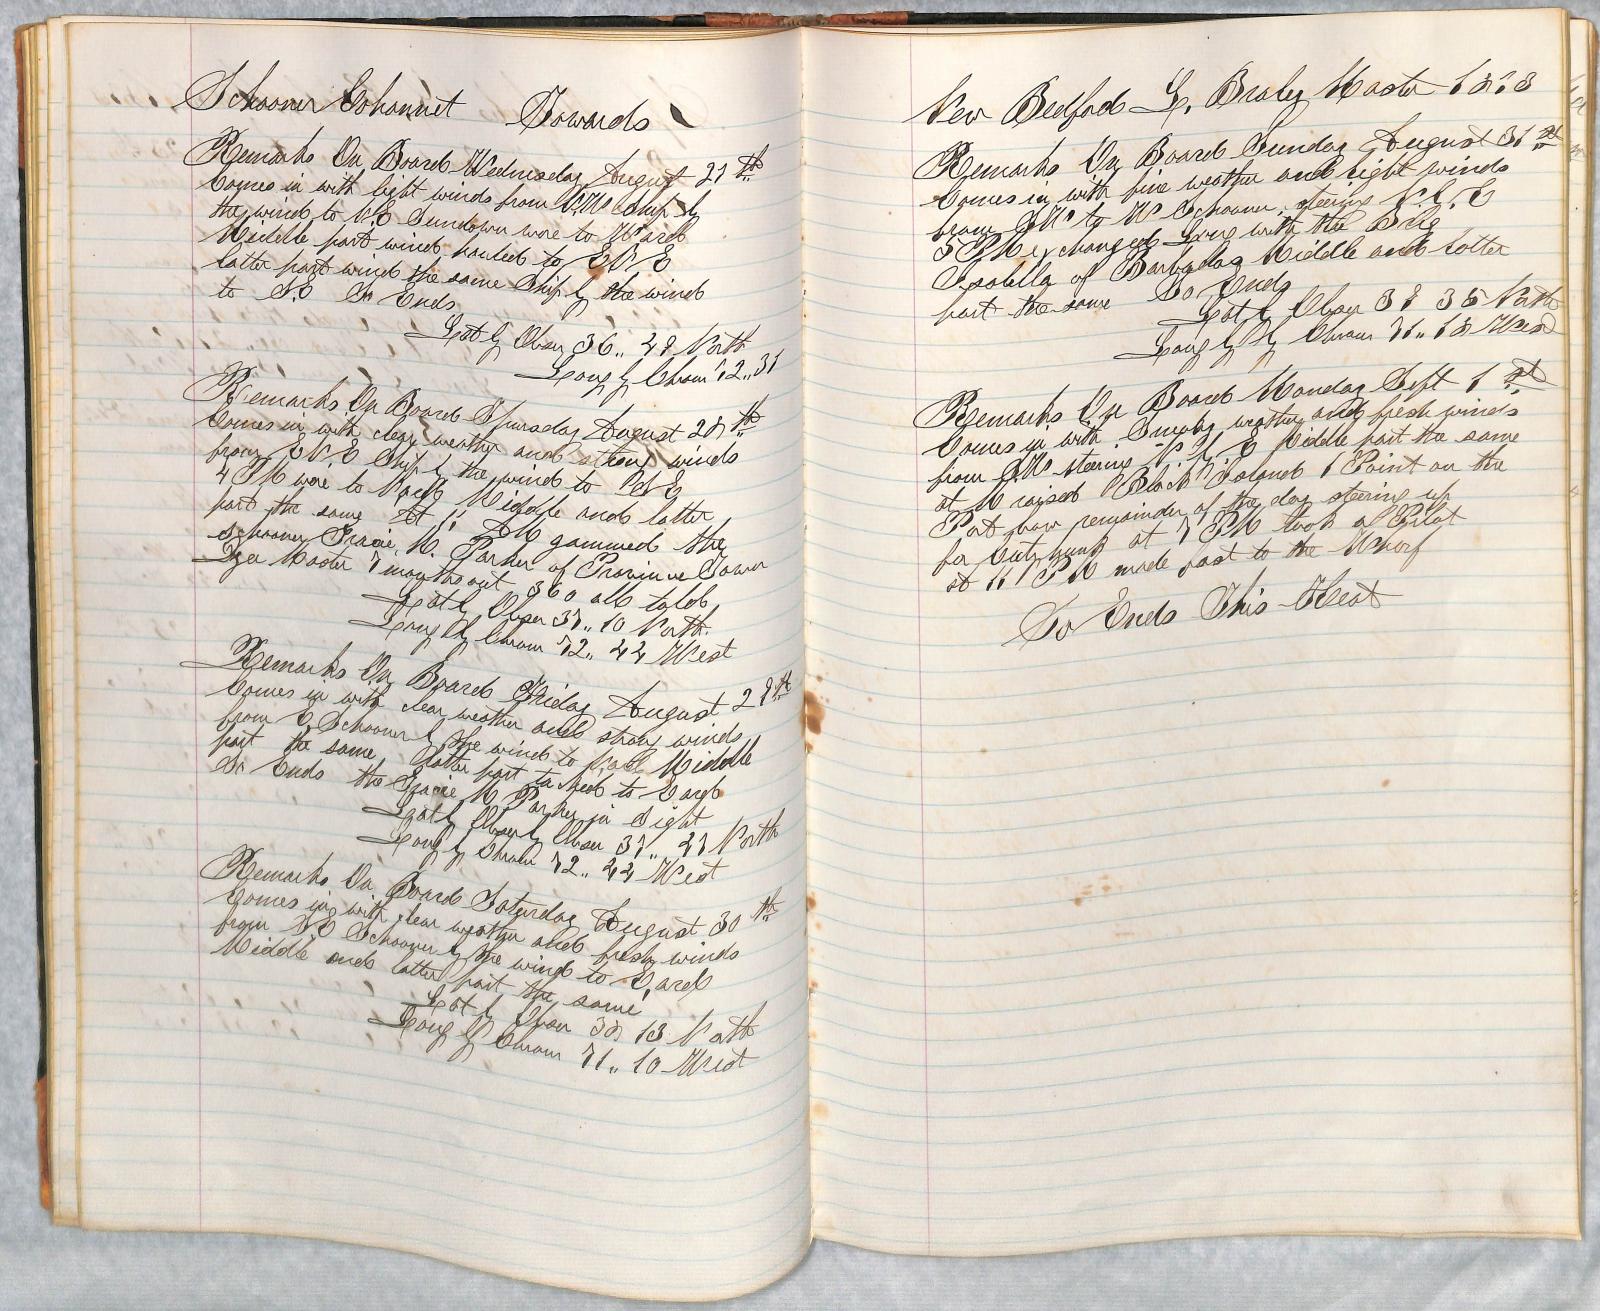 Schooner Gohannet Towards
Remarks On Board Wednesday August 27th
Comes in with light winds from
the wind to N.E Sundown wore to Ward
Middle part wind hauled to ENE
latter part wind the same Ship by the wind
to S.E So Ends
Lat by Obser 36,, 29 North
Long by Chrom 72,, 31
Remarks On Board Thursday August 28th
Comes in with clear weather and strong winds
from ENE Ship by the wind to
4 PM wore to Middle and latter
part the same At 11 AM gammed the
schooner Gracie M. Parker of Province Town
Master 7 months out 360 all told
Lat by Obser 37,, 10 North.
Long By Chrom 72,, 44 West
Remarks On Board Friday August 29th
Comes in with clear weather and strong winds
from E Schooner by the wind to Middle
part the same latter part tacked to Eard
So Ends the Gracie M Parker in Sight
Lat by Obser by Obser 37,, 27 North
Long by Chrom 72,, 44 West
Remarks On Board Saturday August 30th
Comes in with clear weather and fresh winds
from NE Schooner by the wind to Eard
Middle and latter part the same
Lat by Obser 38 13 North
Long By Chrom 71,, 10 West
New Bedford L. Braley Master 1873
Remarks On Board Sunday August 31st
Comes in with fine weather and light winds
from SW to W Schooner steering N.E.
5 PM exchanged Long with the Brig
Isabella of Barbados Middle and latter
part the same So Ends
Lat by Obser 39 36 North
Long By Chrom 71,, 18 West
Remarks On Board Monday Sept 1st
Comes in with Smoky weather and fresh winds
from SW steering N.E Middle part the same
at M raised Block Island 1 Point on the
Port bow remainder of the day steering up
for Cutyhunk at 7 PM took a Pilot
at 11 PM made fast to the Wharf
So Ends This